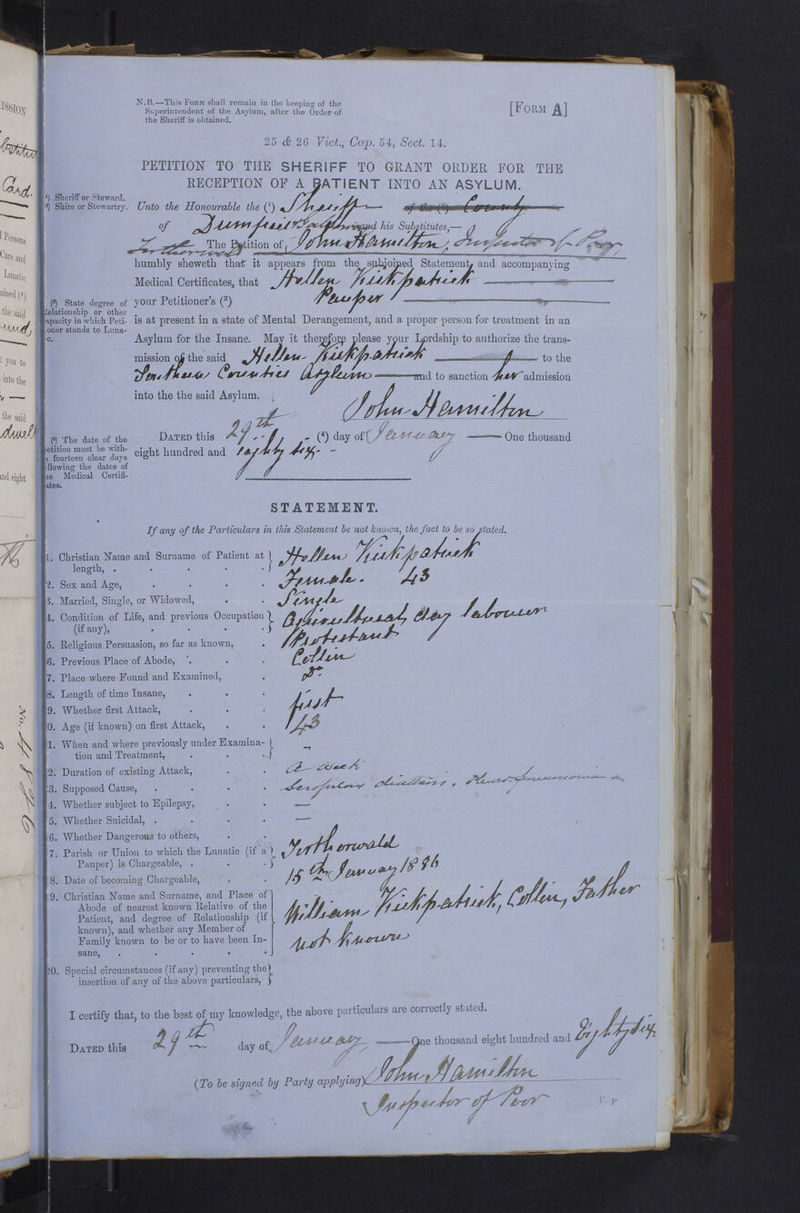 N.B.—This FORM shall remain in the keeping of the
Superintendent of the Asylum, after the Order of
the Sheriff is obtained.
[FORM A]
25 & 26 Vict., Cap. 54, Sect. 14.
PETITION TO THE SHERIFF TO GRANT ORDER FOR THE
RECEPTION OF A PATIENT INTO AN ASYLUM.
Sheriff or Steward.
Shire or Stewartry.
Unto the Honourable the (1) Sheriff of the (2) County
of Dumfries & Galloway and his Substitutes,—
The Petition of John Hamilton, Inspector of Poor,
Torthorwald
humbly sheweth that it appears from the subjoined Statement, and accompanying
Medical Certificates, that Hellen Kirkpatrick
(3) State degree of
relationship or other
capacity in which Peti-
oner stands to Luna-
c.
your Petitioner's (3) Pauper
is at present in a state of Mental Derangement, and a proper person for treatment in an
Asylum for the Insane. May it therefore please your Lordship to authorize the trans-
mission of the said Hellen Kirkpatrick to the
Southern Counties Asylum and to sanction her admission
into the the said Asylum.
John Hamilton
(4) The date of the
etition must be with-
fourteen clear days
llowing the dates of
Medical Certifi-
ates.
DATED this 29th (4) day of January One thousand
eight hundred and eighty six.
STATEMENT.
If any of the Particulars in this Statement be not known, the fact to be so stated.
1. Christian Name and Surname of Patient at
length, . Hellen Kirkpatrick
2. Sex and Age, Female. 43
3. Married, Single, or Widowed, Single
4. Condition of Life, and previous Occupation
(if any), Agricultural day labourer
5. Religious Persuasion, so far as known, Protestant
6. Previous Place of Abode, Collin
7. Place where Found and Examined, Do
8. Length of time Insane,
9. Whether first Attack, first
0. Age (if known) on first Attack, 43
1. When and where previously under Examina-
tion and Treatment, –
2. Duration of existing Attack, A week
3. Supposed Cause, Scrofulous diathesis, Pleuro pneumonia
4. Whether subject to Epilepsy, —
5. Whether Suicidal, —
6. Whether Dangerous to others,
7. Parish or Union to which the Lunatic (if a
Pauper) is Chargeable, . Torthorwald
8. Date of becoming Chargeable, 15th January 1886
9. Christian Name and Surname, and Place of
Abode of nearest known Relative of the
Patient, and degree of Relationship (if
known), and whether any Member of
Family known to be or to have been In-
sane, .
William Kirkpatrick, Collin, Father
not known
20. Special circumstances (if any) preventing the
insertion of any of the above particulars,
I certify that, to the best of my knowledge, the above particulars are correctly stated.
DATED this 29th day of January, One thousand eight hundred and Eighty six
(To be signed by Party applying) John Hamilton
Inspector of Poor